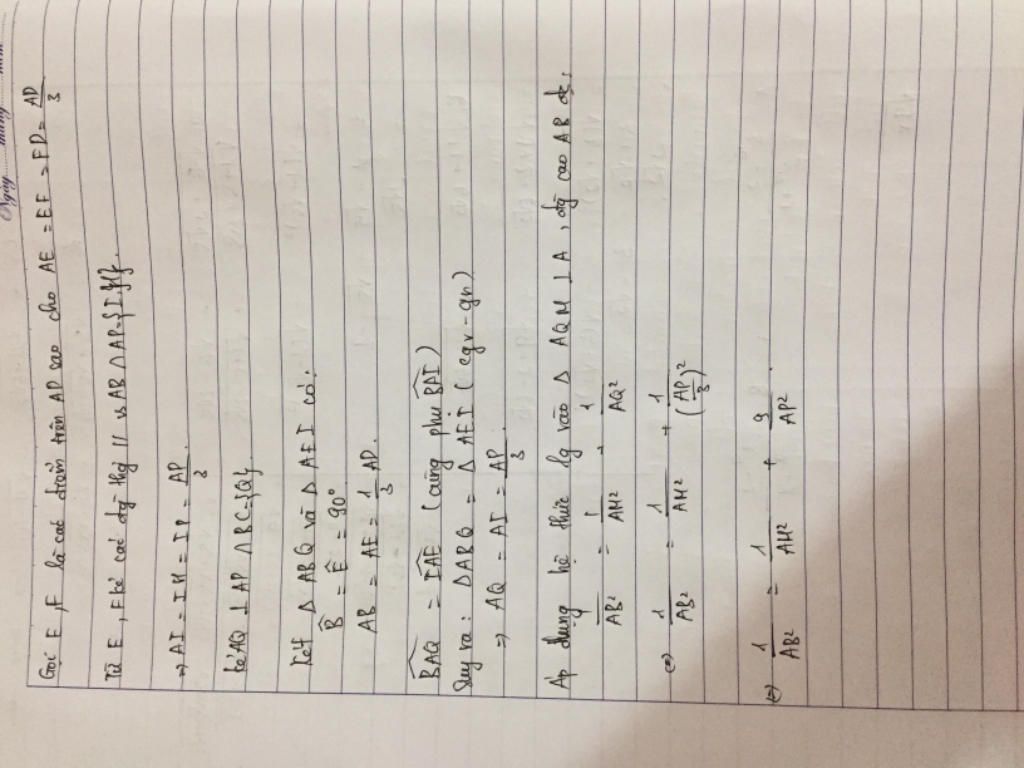 Ngày tháng năm
Gọi E, F là các điểm trên AD sao cho AE = EF = FD = AD/3
Từ E, F kẻ các đg thg // vs AB ∩ AP={I;H}.
=> AI = IH = IP = AP/3
Kẻ AQ ⊥ AP ∩ BC={Q}.
Xét Δ ABQ và Δ AEI có:
B̂ = Ê = 90°
AB = AE = 1/3 AD.
BAQ = IAE (cùng phụ BAI)
Suy ra: ΔABQ = Δ AEI (cgv-gn)
=> AQ = AI = AP/3.
Áp dụng hệ thức lg vào Δ AQM ⊥ A, đg cao AB đc:
1/AB² = 1/AM² + 1/AQ²
(=) 1/AB² = 1/AM² + 1/(AP/3)²
(=) 1/AB² = 1/AM² + 9/AP².